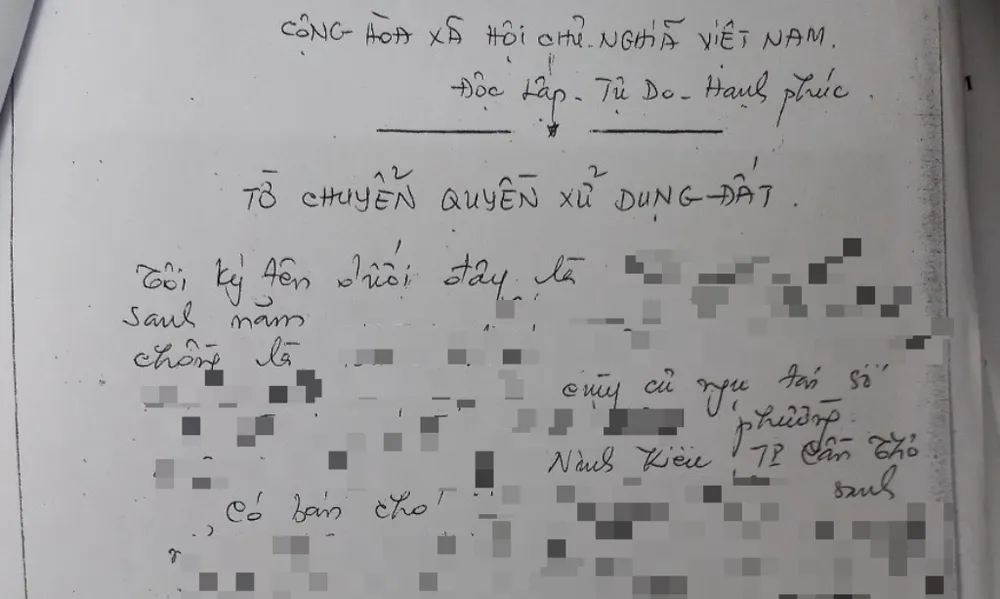 CỘNG HÒA XÃ HỘI CHỦ NGHĨA VIỆT NAM.
Độc Lập - Tự Do - Hạnh phúc.
TỜ CHUYỂN QUYỀN XỬ DỤNG ĐẤT.
Tôi ký tên dưới đây là
sanh năm
chồng là
cùng cư ngụ tại số
phường
Ninh Kiều TP Cần Thơ
sanh
Có bán cho